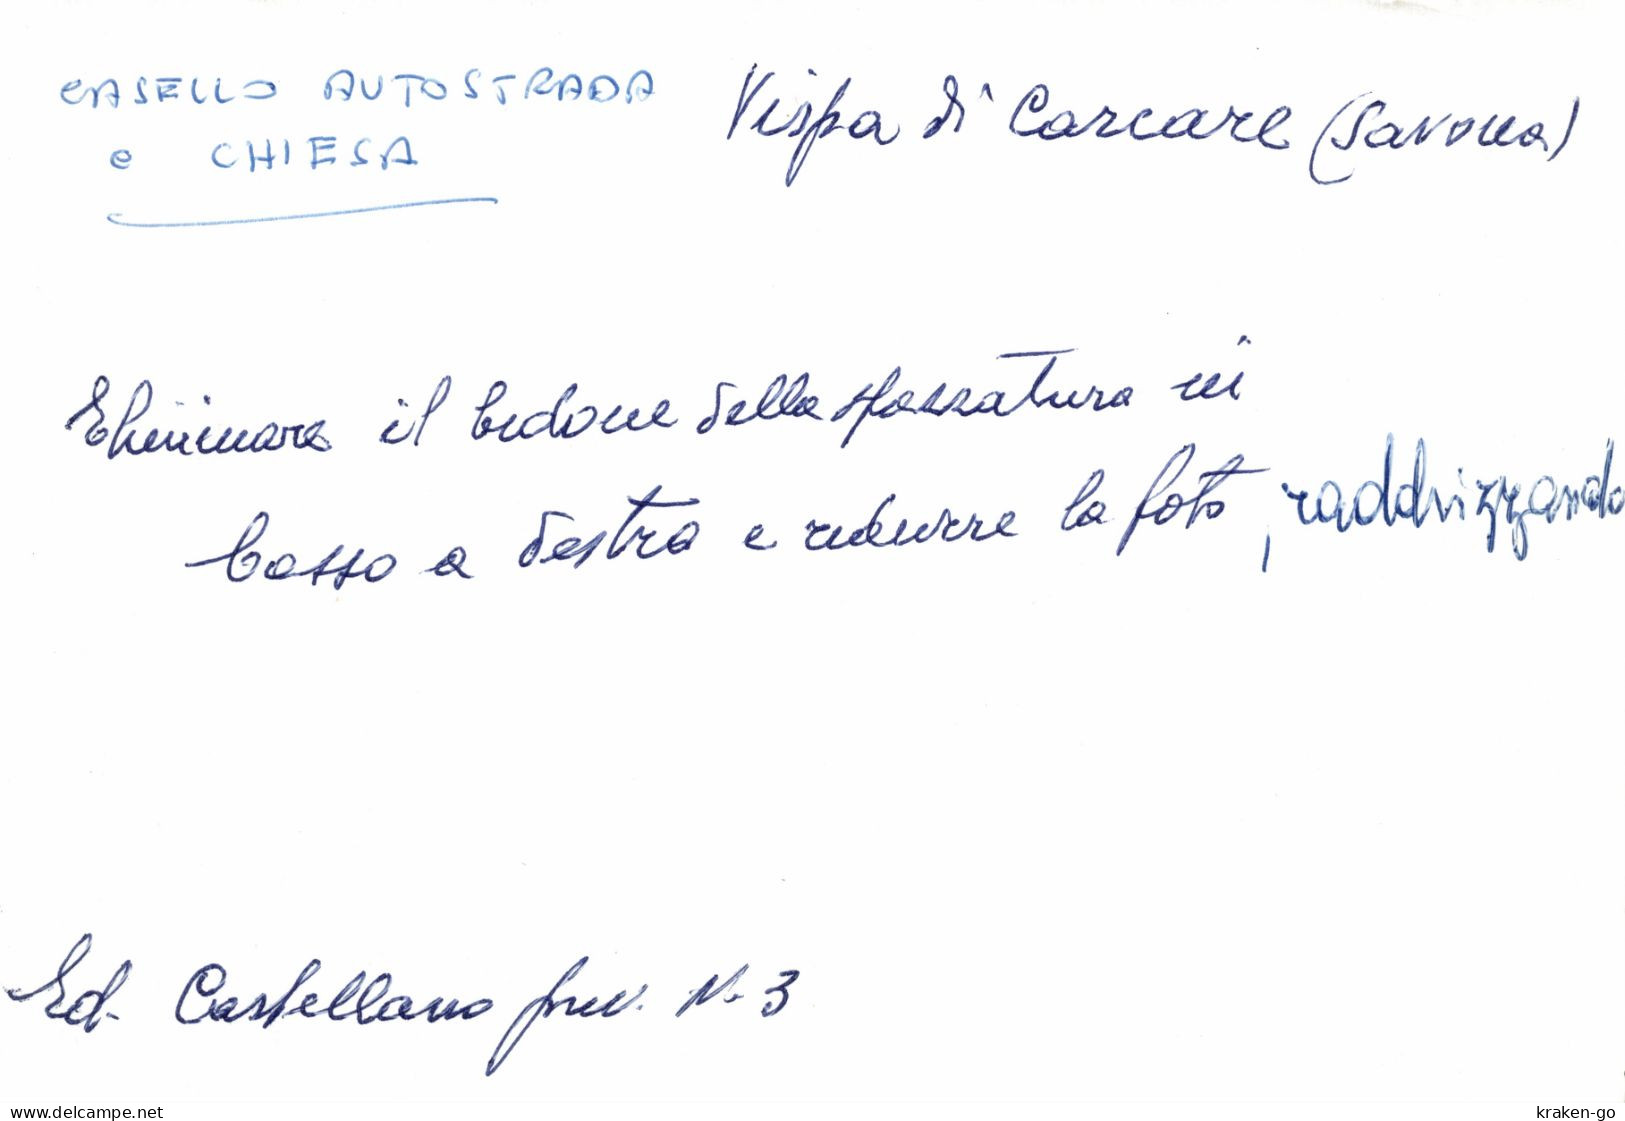 CASELLO AUTOSTRADA
e CHIESA
Vispa di Carcare (Savona)
Eliminare il bidone della spazzatura in
basso a destra e ridurre la foto, raddrizzando
Ed. Castellano prev. N. 3
www.delcampe.net
kraken-go